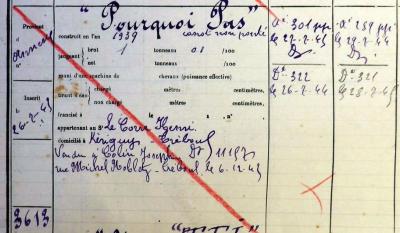 "Pourquoi Pas"
Provenant
construit en l'an 1939 canot non ponté
jaugeant
brut 1 tonneau 01 /100
net tonneaux /100
muni d'une machine de chevaux (puissance effective)
tirant d'eau
chargé mètres centimètres,
non chargé mètres centimètres,
francisé à le 1 n°
appartenant au Sr Le Corre Henri
domicilié à Kériguy - Tréboul
Vendu à Colin Joseph DZ 11157
rue Michel Noblet - Tréboul le 6.12.45
Inscrit
26-2-45
3613
Dn 301 pp
le 27-2-45
Dn 259 pp
le 29-2-44
D° 322
le 26-2-44
D° 321
le 28-2-45